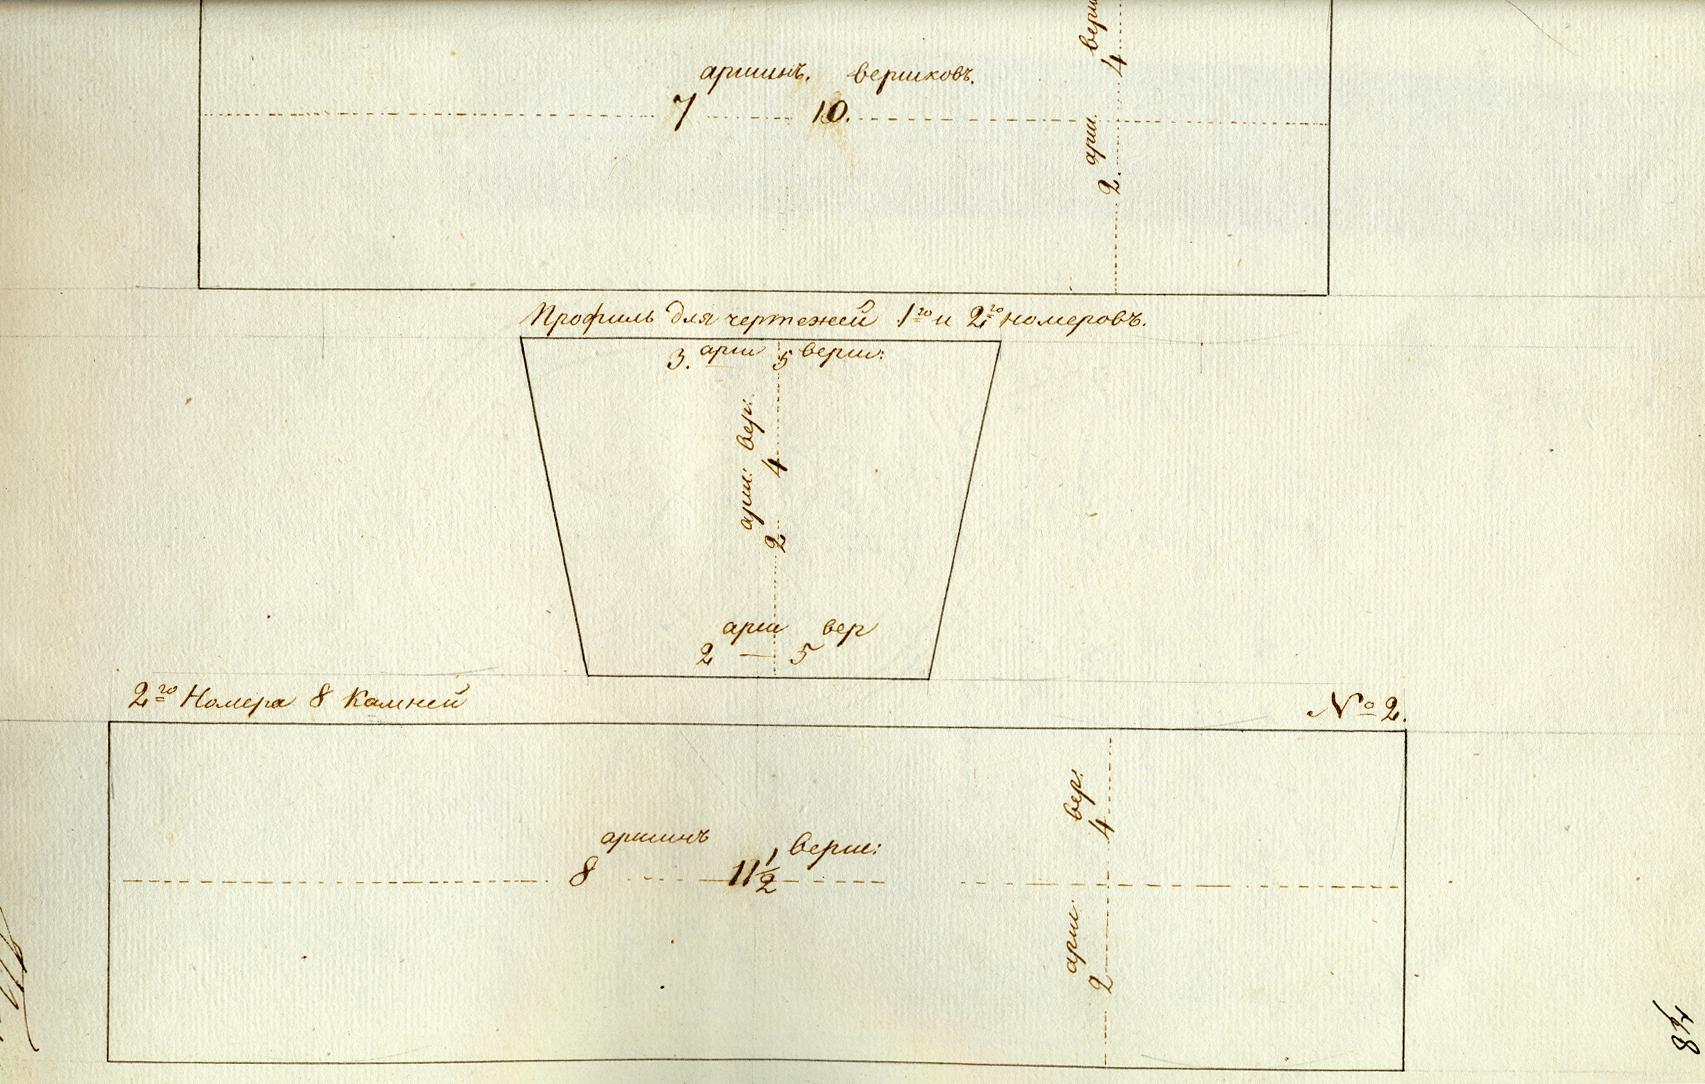 аршинъ. вершковъ.
7 10.
2. арш. 4 верш
Профиль для чертежей 1го и 2го номеровъ.
3. арш 5 верш:
2 арш: 4 вер:
арш вер
2 — 5
2го Номера 8 Камней
№ 2.
аршинъ верш:
8 11 1/2
2 арш: 4 вер:
84